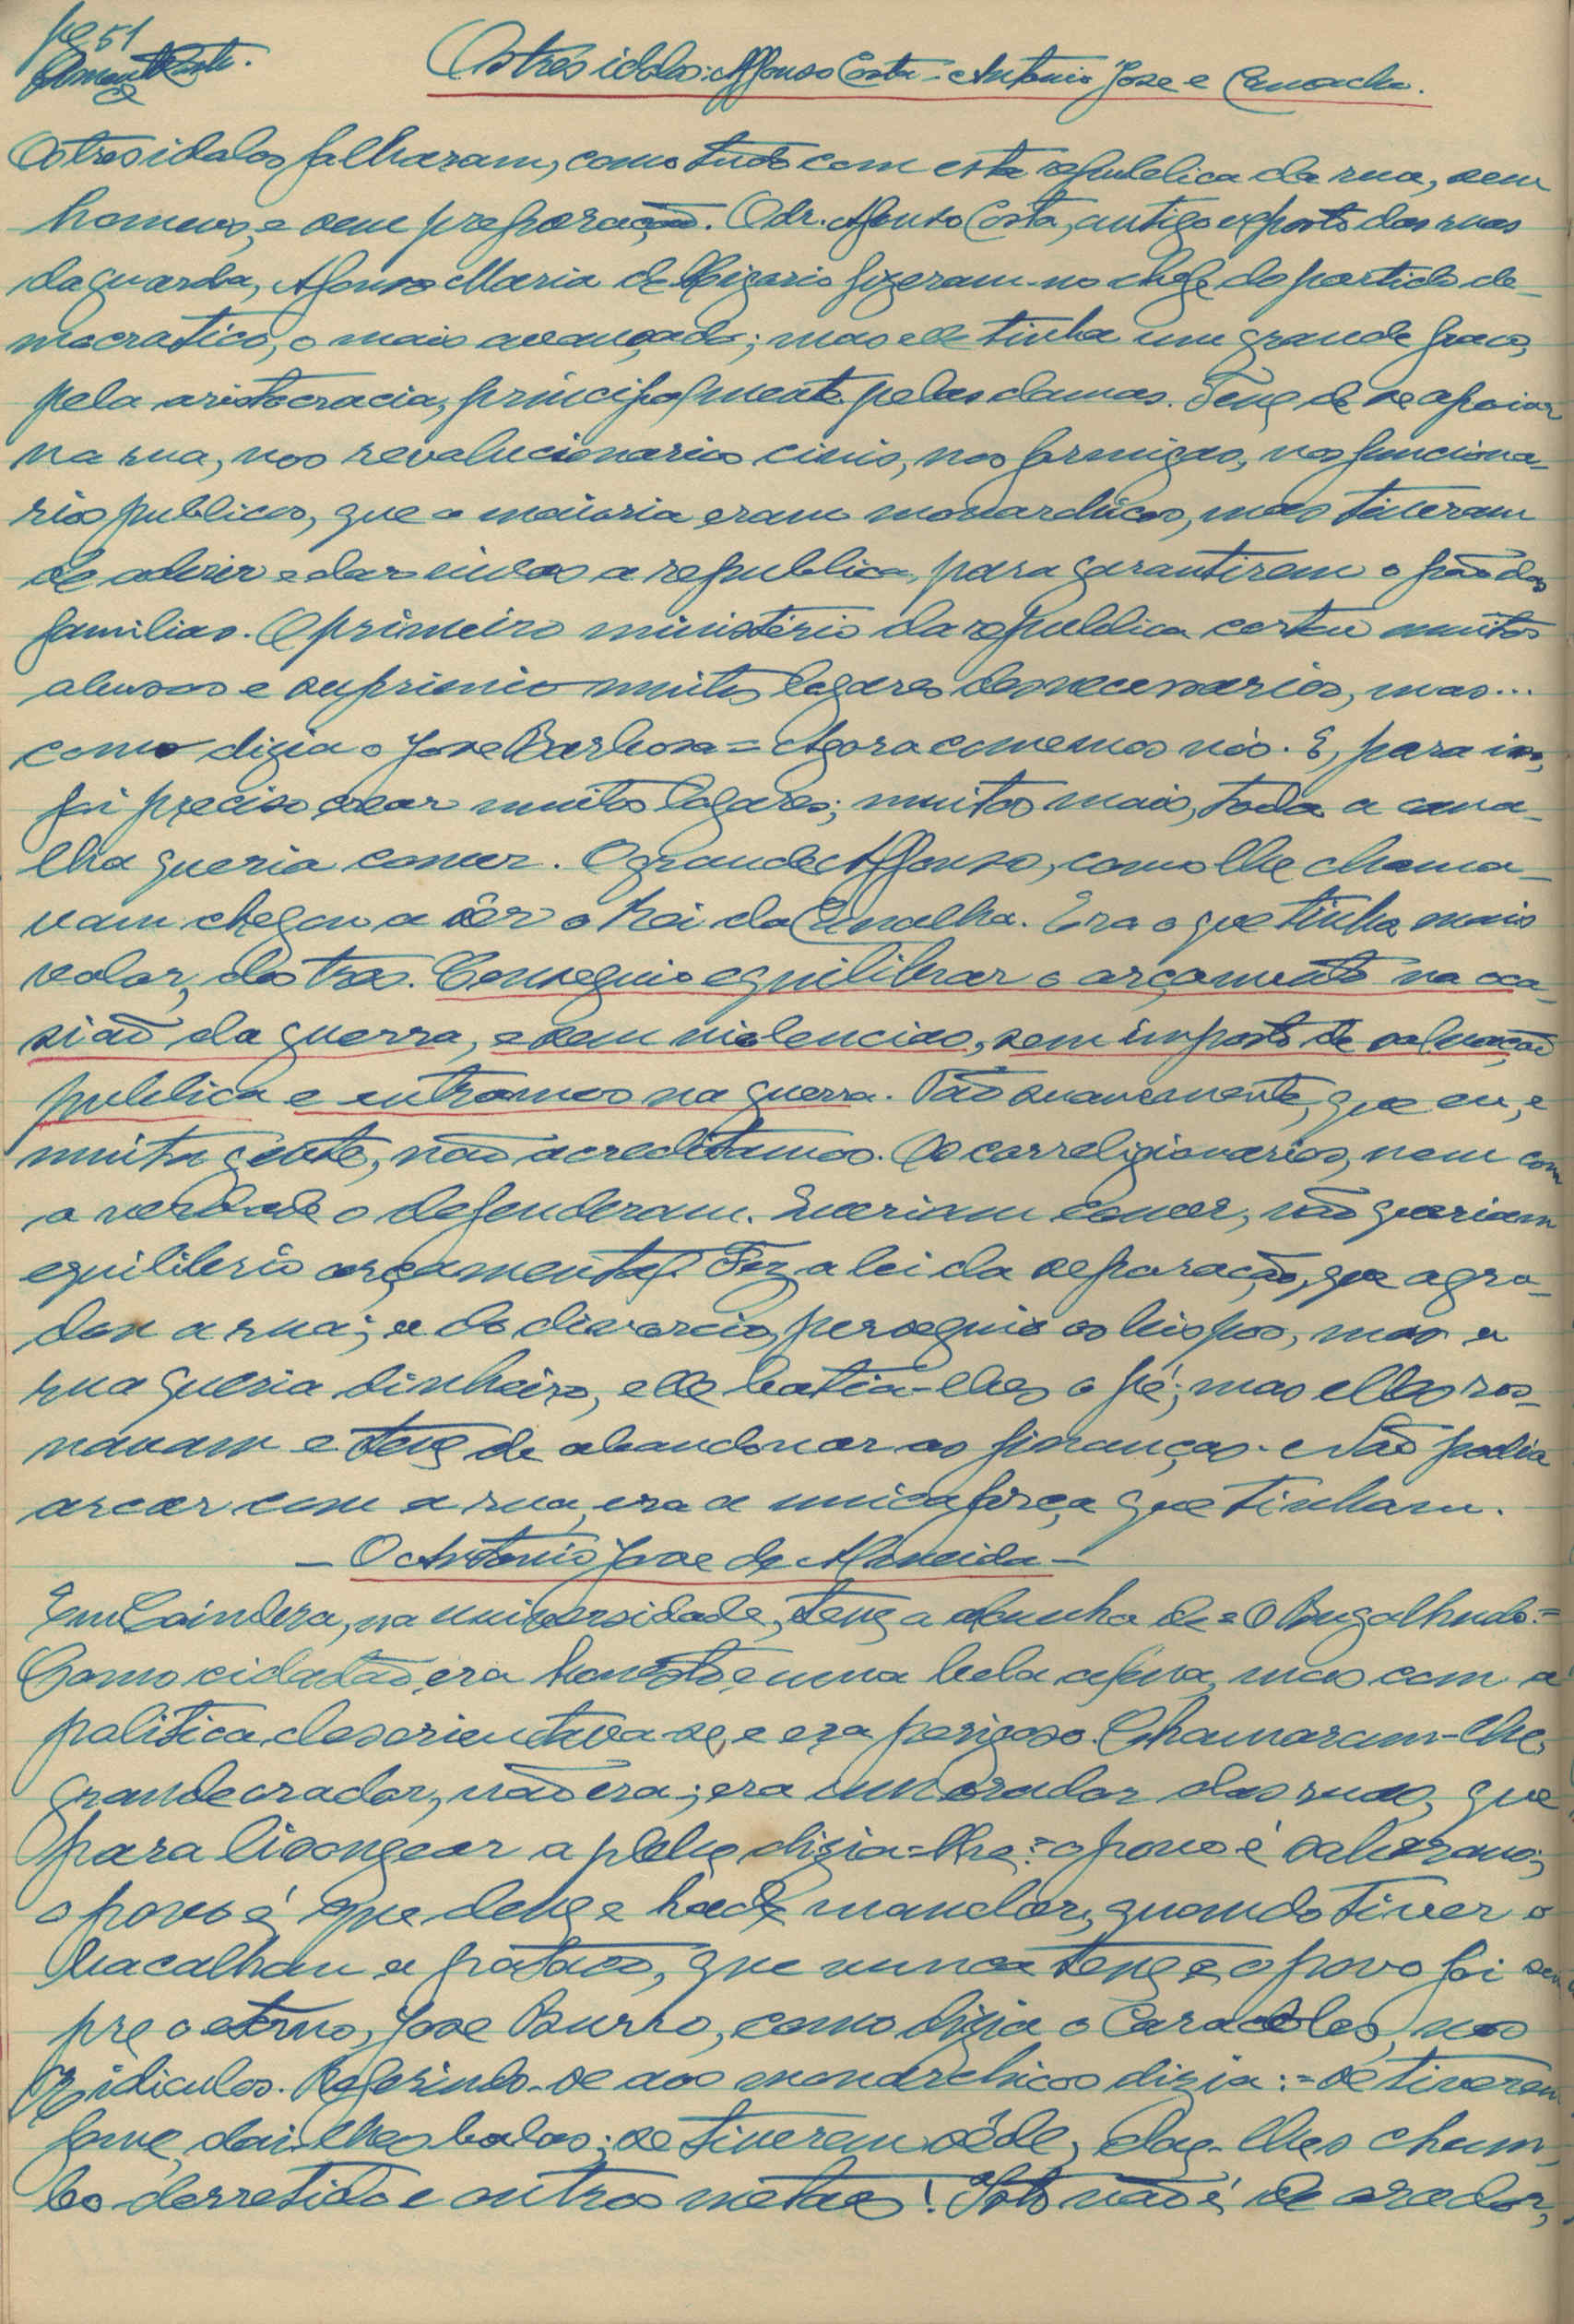 pg 51
Os tres idolos: Affonso Costa = Antonio Jose e Camacho.
Os tres idolos falharam, como tudo com esta republica da rua, sem
homens, e sem preparação. O dr. Afonso Costa, antigo exposto das ruas
da guarda, Afonso Maria de Ligorio fizeram-no chefe do partido de-
mocratico, o mais avançado; mas elle tinha um grande fraco,
pela aristocracia, principalmente pelas damas. Teve de se apoiar
na rua, nos revolucionarios civis, nos formigas, nos funciona-
rios publicos, que a maioria eram monarchicos, mas tiveram
de aderir e dar vivas a republica, para garantirem o pão das
familias. O primeiro ministério da republica cortou muitos
abusos e suprimio muitos logares desnecessarios, mas...
como dizia o Jose Barbosa = Agora comemos nós. E, para isso,
foi preciso crear muitos logares; muitos mais, toda a cana-
lha queria comer. O grande Affonso, como lhe chama-
vam chegou a sêr o Rei da Canalha. Era o que tinha mais
valor, dos tres. Conseguio equilibrar o orçamento na oca-
sião da guerra, e sem violencias, sem imposto de salvação
publica e entramos na guerra. Tão suavemente, que eu, e
muita gente, não acreditamos. Os correligionarios, nem com
a verdade o defenderam. Queriam comer, não queriam
equilibrio orçamental. Fez a lei da separação, que agra-
dou a rua; e do divorcio, perseguio os bispos, mas a
rua queria dinheiro, elle batia-lhes o pé; mas elles ros-
navam e teve de abandonar as finanças. Não podia
arcar com a rua, era a unica força que tinham.
— O Antonio Jose de Almeida —
Em Coimbra, na universidade, teve a alcunha de = O Bugalhudo. =
Como cidadão, era honesto, e uma bela alma, mas com a
politica desorientava-se, e era perigoso. Chamaram-lhe,
grande orador, não era; era um orador das ruas, que
para lisongear a plebe, dizia-lhe: = o povo é soberano;
o povo é que deve e hade mandar, quando tiver o
bacalhau a pataco, que nunca teve, e o povo foi sem
pre o eterno, Jose Burro, como dizia o Caracoles, nos
Ridiculos. Referindo-se aos monarchicos dizia: = se tiverem
fome, dai-lhes balas; se tiverem sêde, dae-lhes chum-
bo derretido e outros metaes! Isto não é de orador,